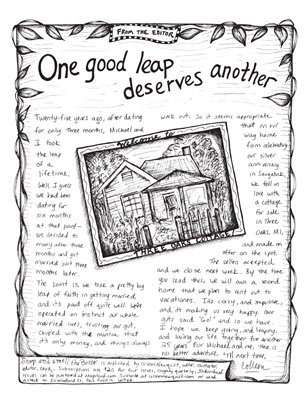 FROM THE EDITOR
One good leap
deserves another
Twenty-five years ago, after dating
for only three months, Michael and
I took
the leap
of a
lifetime.
Well I guess
we had been
dating for
six months
at that point—
we decided to
marry after three
months and got
married just three
months later.
The point is, we took a pretty big
leap of faith in getting married
and its paid off quite well. We've
operated on instinct our whole
married lives, trusting our gut,
coupled with the mantra that
it's only money, and things always
work out. So it seems appropriate
that on our
way home
from celebrating
our silver
anniversary
in Saugatuck,
we fell in
love with
a cottage
for sale
in Three
Oaks, MI,
and made an
offer on the spot.
The sellers accepted
and we close next week. By the time
you read this, we will own a second
home that we plan to rent out to
vacationers. It's crazy, and impulsive,
and it's making us very happy. Our
guts said "Go!" and so we have.
I hope we keep going, and leaping,
and loving our life together for another
25 years. For Michael and me, there is
no better adventure. 'Til next time,
Colleen
Welcome to
THREE OAKS COTTAGE